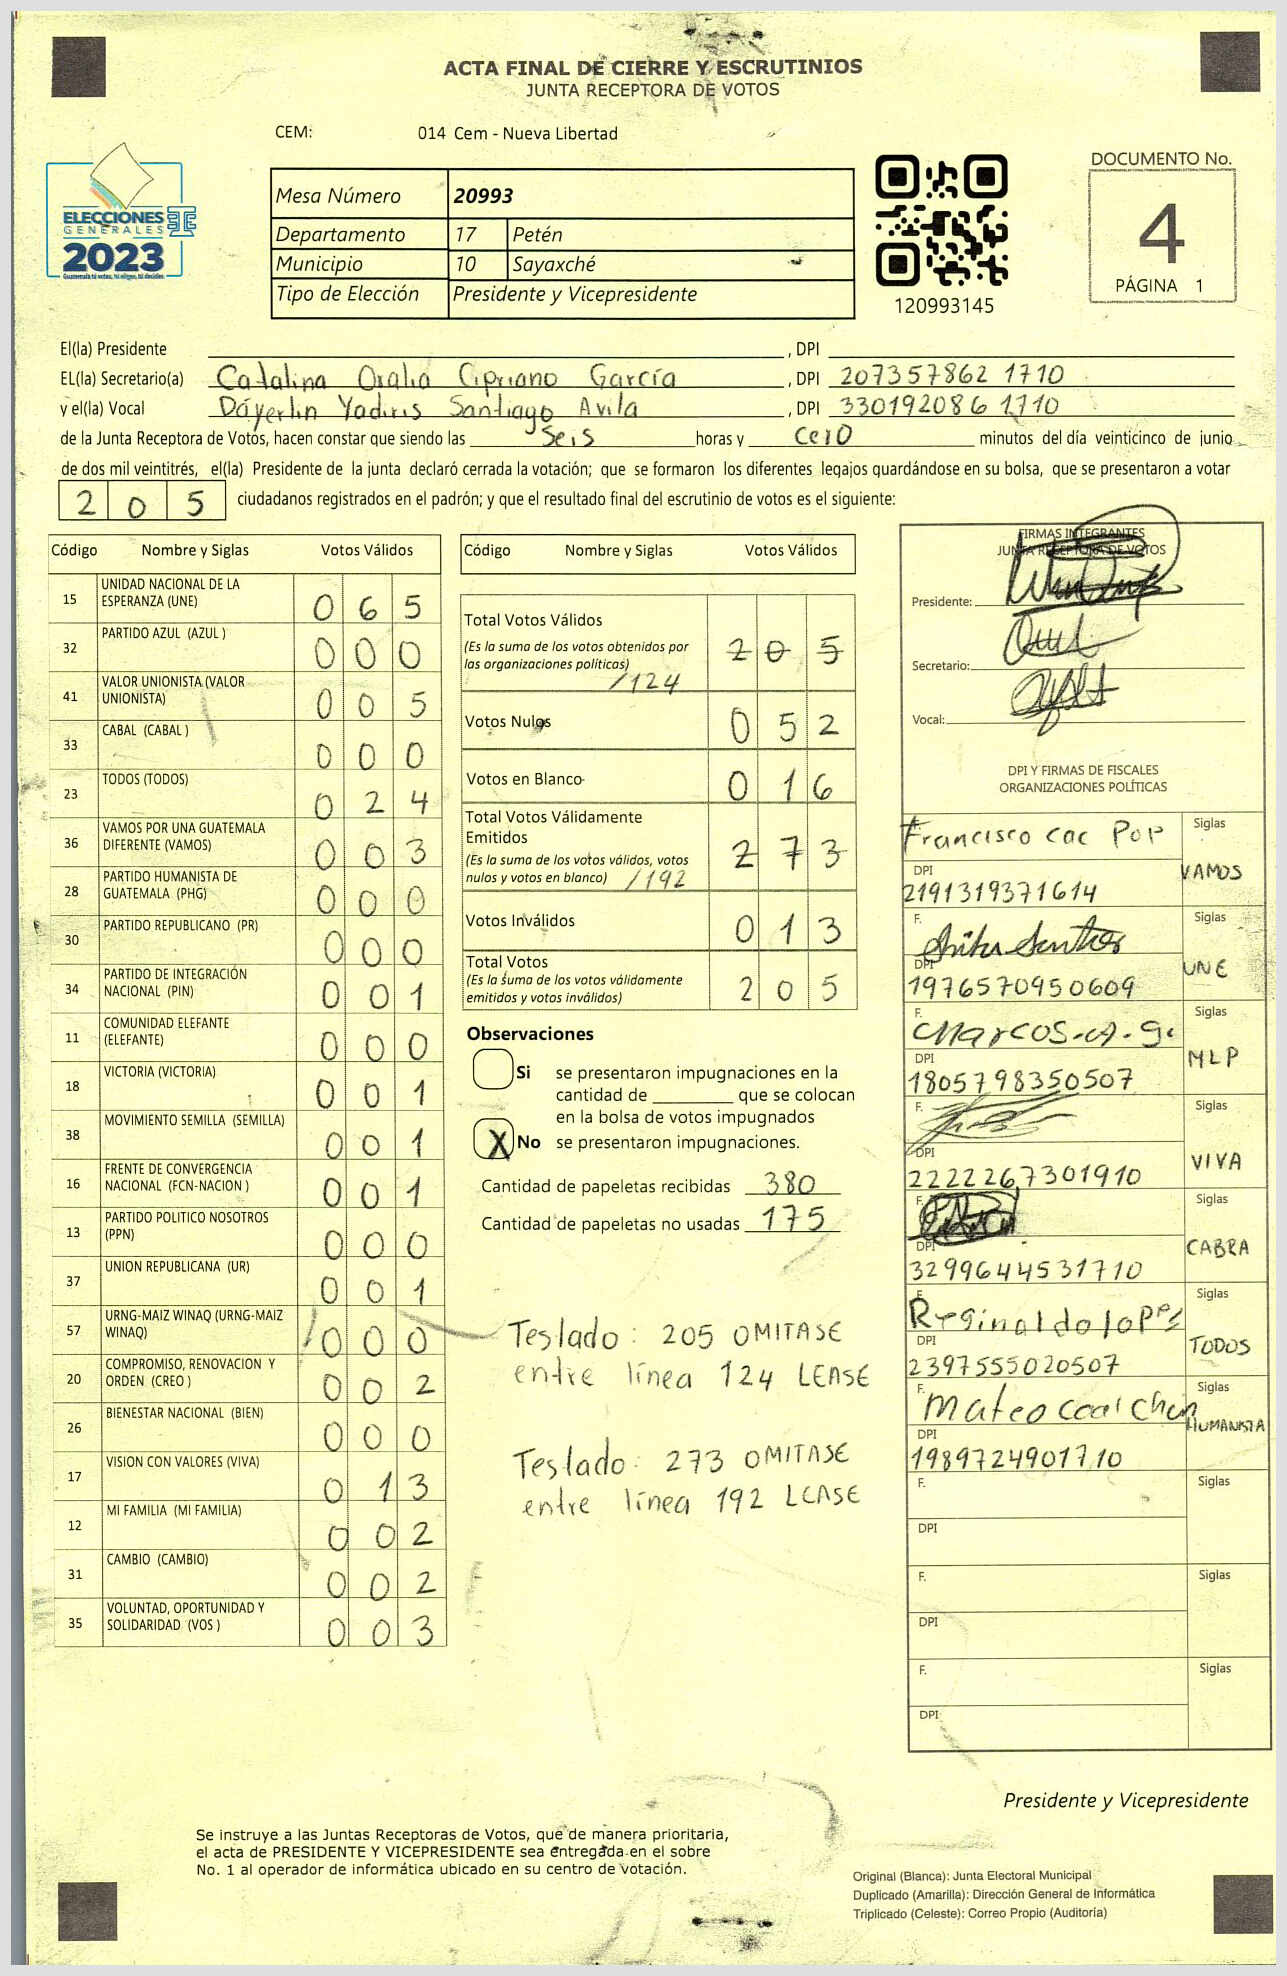 ACTA FINAL DE CIERRE Y ESCRUTINIOS
JUNTA RECEPTORA DE VOTOS
CEM: 014 Cem - Nueva Libertad
ELECCIONES
GENERALES
2023
Guatemala tú votas, tú eliges, tú decides.
Mesa Número 20993
Departamento 17 Petén
Municipio 10 Sayaxché
Tipo de Elección Presidente y Vicepresidente
120993145
DOCUMENTO No.
4
PÁGINA 1
El(la) Presidente , DPI
EL(la) Secretario(a) Catalina Oralia Cipriano García , DPI 207357862 1710
y el(la) Vocal Dáyerlin Yadiris Santiago Avila , DPI 330192086 1710
de la Junta Receptora de Votos, hacen constar que siendo las seis horas y cero minutos del día veinticinco de junio
de dos mil veintitrés, el(la) Presidente de la junta declaró cerrada la votación; que se formaron los diferentes legajos guardándose en su bolsa, que se presentaron a votar
205 ciudadanos registrados en el padrón; y que el resultado final del escrutinio de votos es el siguiente:
Código Nombre y Siglas Votos Válidos
15 UNIDAD NACIONAL DE LA ESPERANZA (UNE) 065
32 PARTIDO AZUL (AZUL ) 000
41 VALOR UNIONISTA (VALOR UNIONISTA) 005
33 CABAL (CABAL ) 000
23 TODOS (TODOS) 024
36 VAMOS POR UNA GUATEMALA DIFERENTE (VAMOS) 003
28 PARTIDO HUMANISTA DE GUATEMALA (PHG) 000
30 PARTIDO REPUBLICANO (PR) 000
34 PARTIDO DE INTEGRACIÓN NACIONAL (PIN) 001
11 COMUNIDAD ELEFANTE (ELEFANTE) 000
18 VICTORIA (VICTORIA) 001
38 MOVIMIENTO SEMILLA (SEMILLA) 001
16 FRENTE DE CONVERGENCIA NACIONAL (FCN-NACION ) 001
13 PARTIDO POLITICO NOSOTROS (PPN) 000
37 UNION REPUBLICANA (UR) 001
57 URNG-MAIZ WINAQ (URNG-MAIZ WINAQ) 000
20 COMPROMISO, RENOVACION Y ORDEN (CREO ) 002
26 BIENESTAR NACIONAL (BIEN) 000
17 VISION CON VALORES (VIVA) 013
12 MI FAMILIA (MI FAMILIA) 002
31 CAMBIO (CAMBIO) 002
35 VOLUNTAD, OPORTUNIDAD Y SOLIDARIDAD (VOS ) 003
Código Nombre y Siglas Votos Válidos
Total Votos Válidos 205
(Es la suma de los votos obtenidos por
las organizaciones políticas)
/124
Votos Nulos 052
Votos en Blanco 016
Total Votos Válidamente
Emitidos 273
(Es la suma de los votos válidos, votos
nulos y votos en blanco) /192
Votos Inválidos 013
Total Votos
(Es la suma de los votos válidamente
emitidos y votos inválidos) 205
Observaciones
Si se presentaron impugnaciones en la
cantidad de ________ que se colocan
en la bolsa de votos impugnados
X No se presentaron impugnaciones.
Cantidad de papeletas recibidas 380
Cantidad de papeletas no usadas 175
Teslado: 205 OMITASE
entre línea 124 LEASE
Teslado: 273 OMITASE
entre línea 192 LEASE
FIRMAS INTEGRANTES
JUNTA RECEPTORA DE VOTOS
Presidente:
Secretario:
Vocal:
DPI Y FIRMAS DE FISCALES
ORGANIZACIONES POLÍTICAS
Francisco cac Pop Siglas
DPI VAMOS
2191319371614
F. Siglas
DPI UNE
1976570950609
F. Marcos-A-G. Siglas
DPI MLP
1805798350507
F. Siglas
DPI VIVA
2222267301910
F. Siglas
DPI CABRA
3299644531710
F. Reginaldo lopez Siglas
DPI TODOS
2397555020507
F. Mateo coal chun Siglas
DPI HUMANISTA
1989724901710
F. Siglas
DPI
F. Siglas
DPI
F. Siglas
DPI
Presidente y Vicepresidente
Se instruye a las Juntas Receptoras de Votos, que de manera prioritaria,
el acta de PRESIDENTE Y VICEPRESIDENTE sea entregada en el sobre
No. 1 al operador de informática ubicado en su centro de votación.
Original (Blanca): Junta Electoral Municipal
Duplicado (Amarilla): Dirección General de Informática
Triplicado (Celeste): Correo Propio (Auditoría)